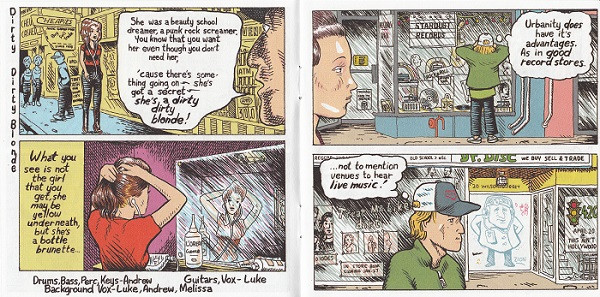 Dirty Dirty Blonde
She was a beauty school
dreamer, a punk rock screamer,
You know that you want
her even though you don't
need her,
'cause there's some-
thing going on - she's
got a secret -
she's a dirty
dirty
blonde!
What you
see is not
the girl
that you
get, she
may be
yellow
underneath,
but she's
a bottle
brunette...
Drums, Bass, Perc, Keys-Andrew
Guitars, Vox-Luke
Background Vox-Luke, Andrew, Melissa
STARDUST
RECORDS
Urbanity does
have it's
advantages.
As in good
record stores.
...not to mention
venues to hear
live music!
OLD SCHOOL
DR. DISC
WE BUY SELL & TRADE
IN STORE
APRIL 20
HOLLYWOOD